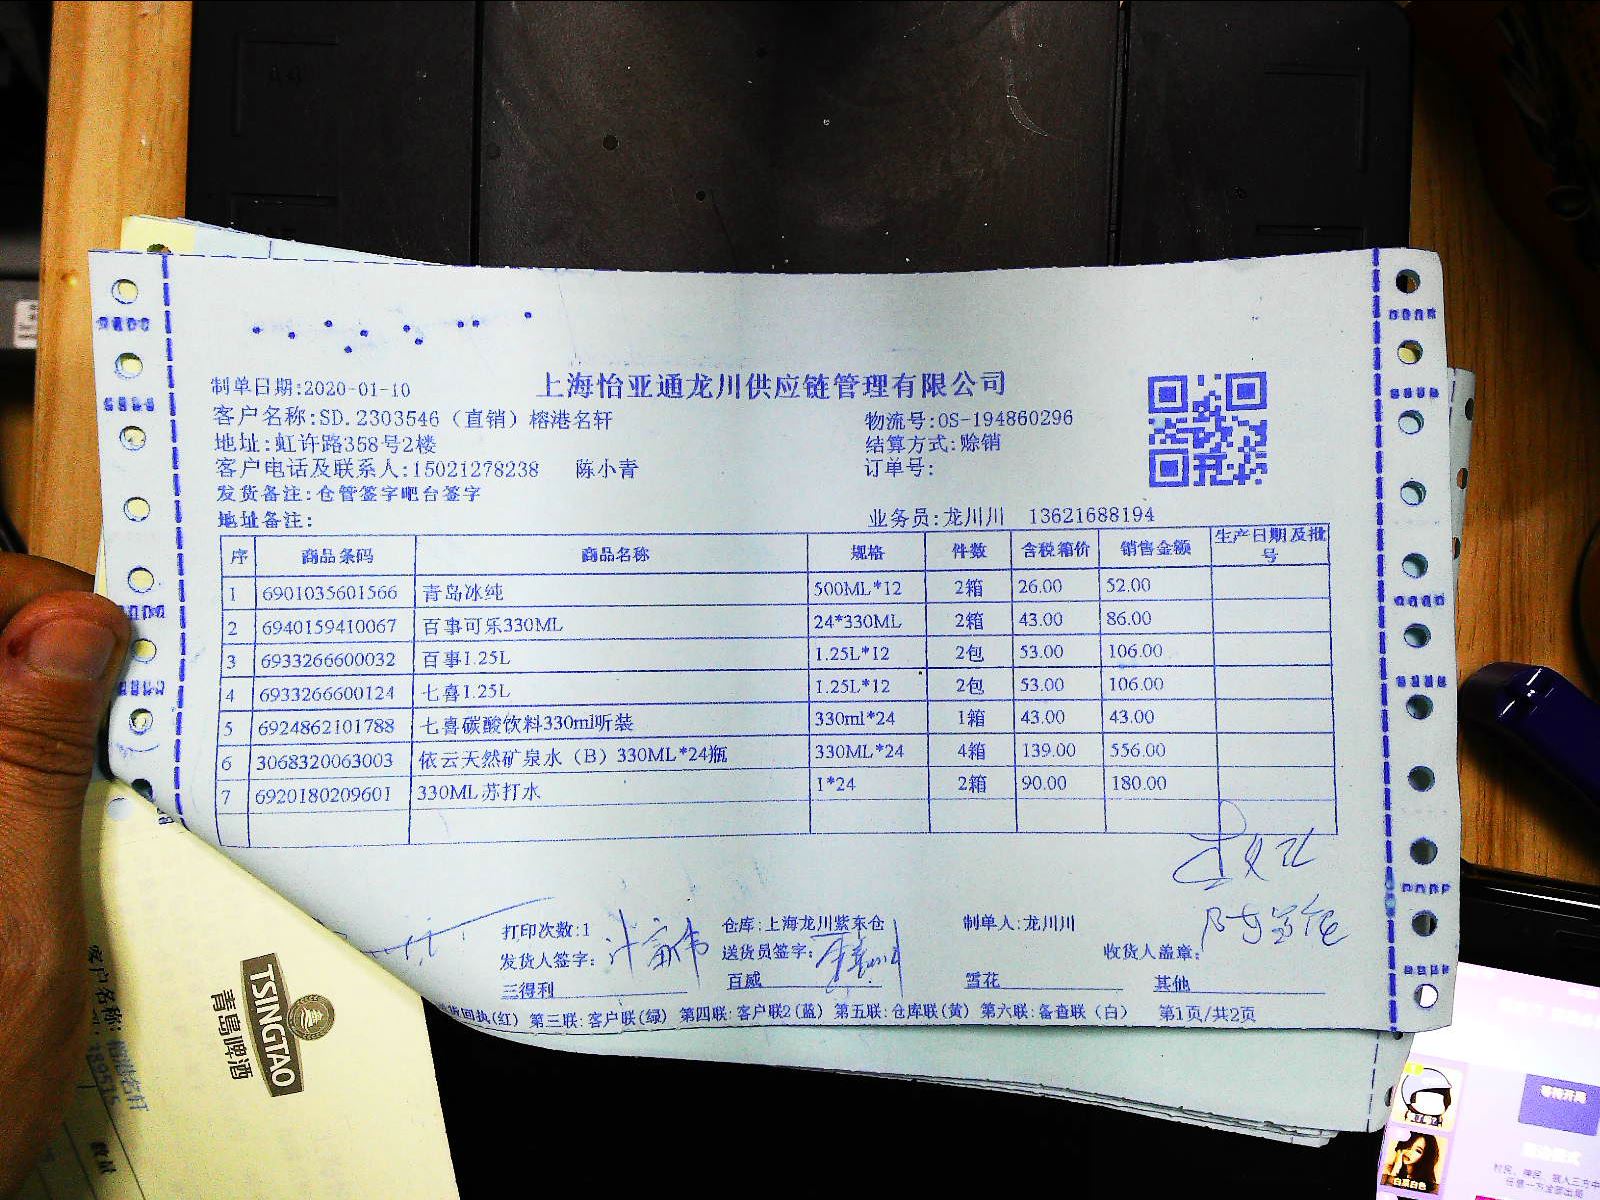 制单日期:2020-01-10
上海怡亚通龙川供应链管理有限公司
客户名称:SD.2303546（直销）榕港名轩
物流号:OS-194860296
地址:虹许路358号2楼
结算方式:赊销
客户电话及联系人:15021278238 陈小青
订单号:
发货备注:仓管签字吧台签字
地址备注:
业务员:龙川川 13621688194
序 商品条码 商品名称 规格 件数 含税箱价 销售金额 生产日期及批号
1 6901035601566 青岛冰纯 500ML*12 2箱 26.00 52.00
2 6940159410067 百事可乐330ML 24*330ML 2箱 43.00 86.00
3 6933266600032 百事1.25L 1.25L*12 2包 53.00 106.00
4 6933266600124 七喜1.25L 1.25L*12 2包 53.00 106.00
5 6924862101788 七喜碳酸饮料330ml听装 330ml*24 1箱 43.00 43.00
6 3068320063003 依云天然矿泉水（B）330ML*24瓶 330ML*24 4箱 139.00 556.00
7 6920180209601 330ML苏打水 1*24 2箱 90.00 180.00
打印次数:1 仓库:上海龙川紫东仓 制单人:龙川川
发货人签字: 送货员签字: 收货人盖章:
三得利 百威 雪花 其他
回执(红) 第三联:客户联(绿) 第四联:客户联2(蓝) 第五联:仓库联(黄) 第六联:备查联（白） 第1页/共2页
TSINGTAO
青岛啤酒
客户名称: 榕港名轩
数量